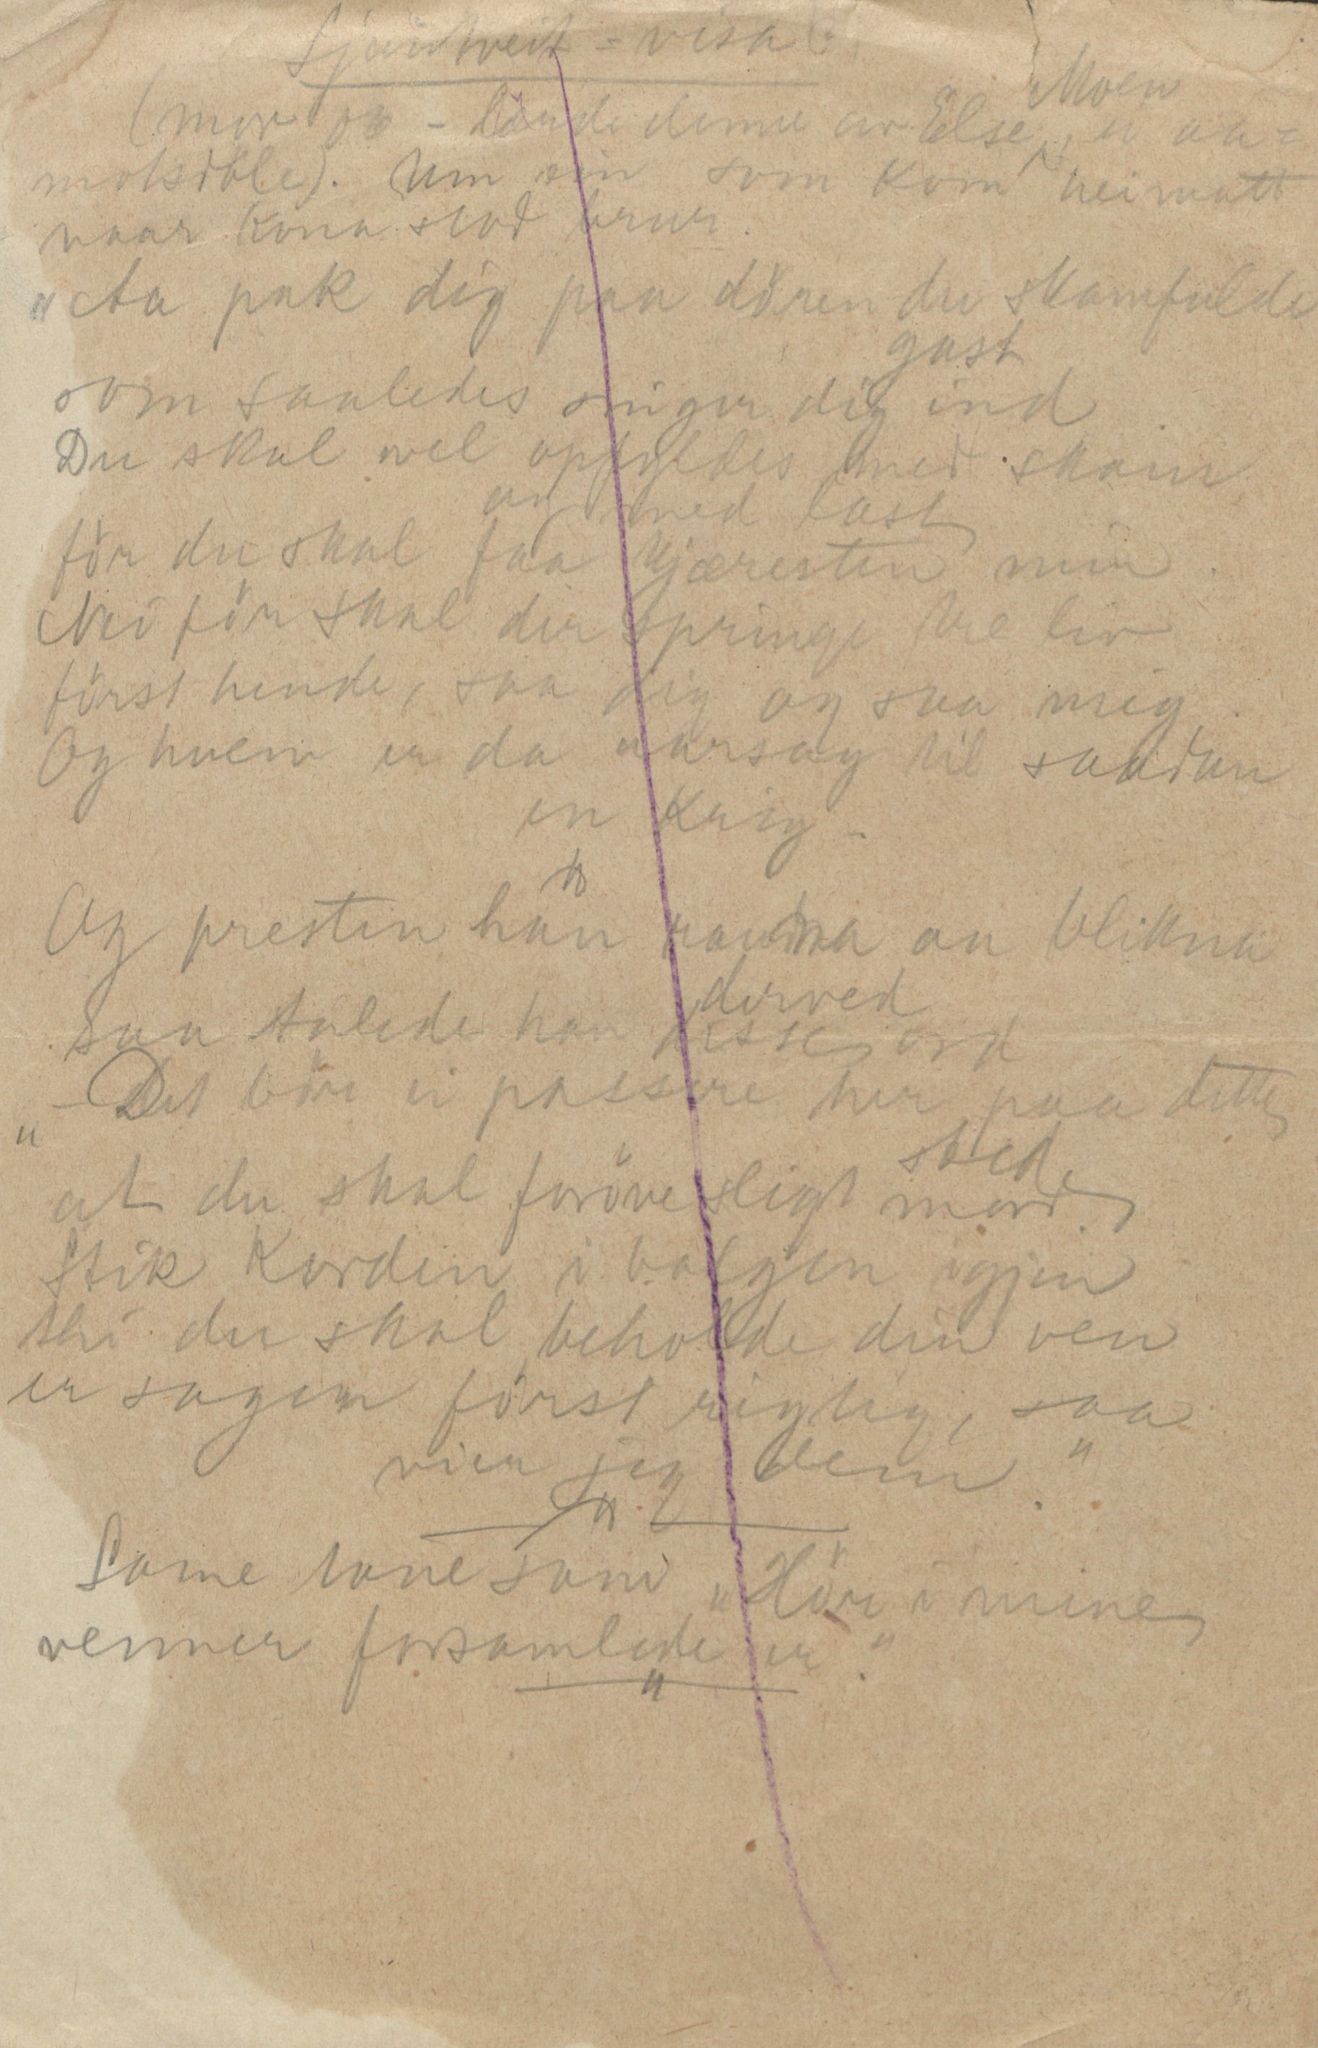 visa
(mor – lærde denne av Else Moen, ei aa=
motsdble). Um ein som kom heimatt
naar kona stod brur.
„Aa pak dig paa dören du skamfulde
gast
som saaledes sniger dig ind
Du skal vel opfyldes med skam
og med last
för du skal faa kjæresten min.
Nei för skal der springe tre liv
först hende, saa dig og saa mig.
Og hvem er da aarsag til saadan
en krig –
"
Og presten han rauna aa blikna
derved
saa talede han disse ord
„– Det bör ei passere her paa dette
sted
at du skal foröve sligt mord.
Stik Korden i balgen igjen
thi du skal beholde din ven
er sagen först rigtig, saa
vier jeg dem."
"
Same tone som „Hör i mine
venner forsamlede er."
"